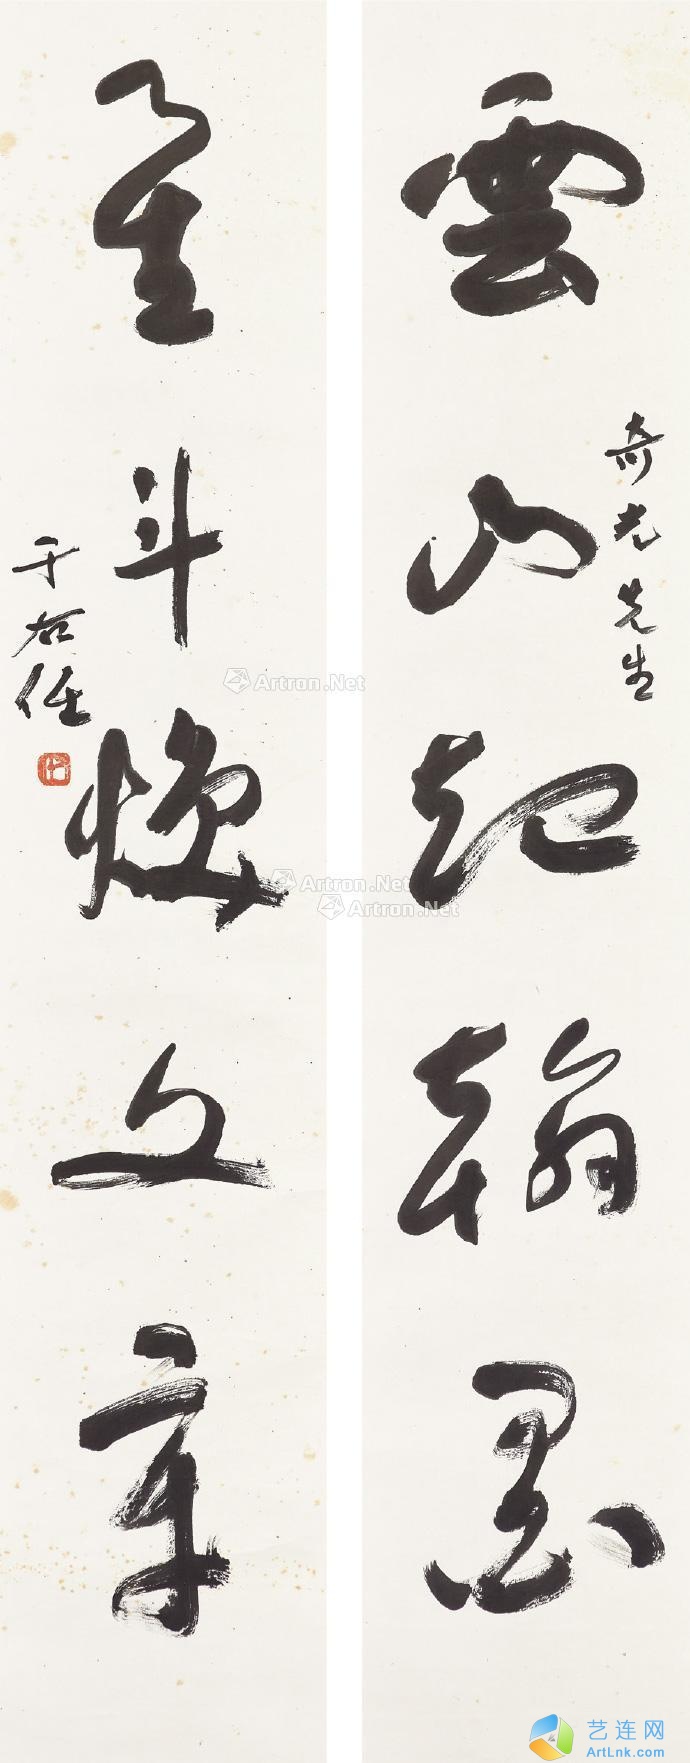 雲山起翰墨
奇光先生
星斗煥文章
于右任
Artron.Net
Artron.Net
Artron.Net
艺连网
ArtLnk.com